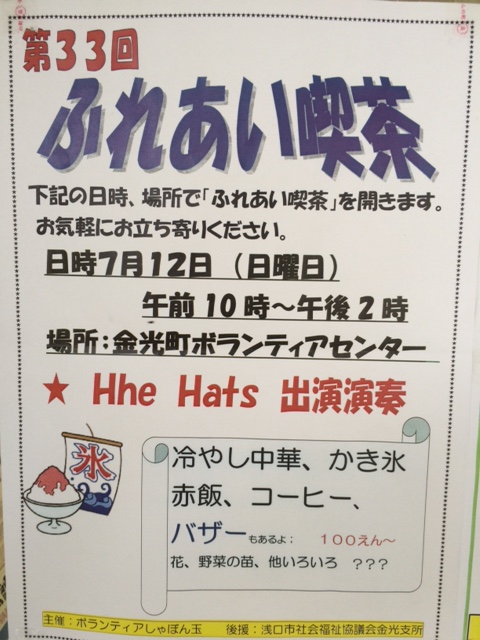 第33回
ふれあい喫茶
下記の日時、場所で「ふれあい喫茶」を開きます。
お気軽にお立ち寄りください。
日時7月12日（日曜日）
午前10時～午後2時
場所：金光町ボランティアセンター
★ Hhe Hats 出演演奏
氷
冷やし中華、かき氷
赤飯、コーヒー、
バザーもあるよ： 100えん～
花、野菜の苗、他いろいろ ???
主催：ボランティアしゃぼん玉 後援：浅口市社会福祉協議会金光支所